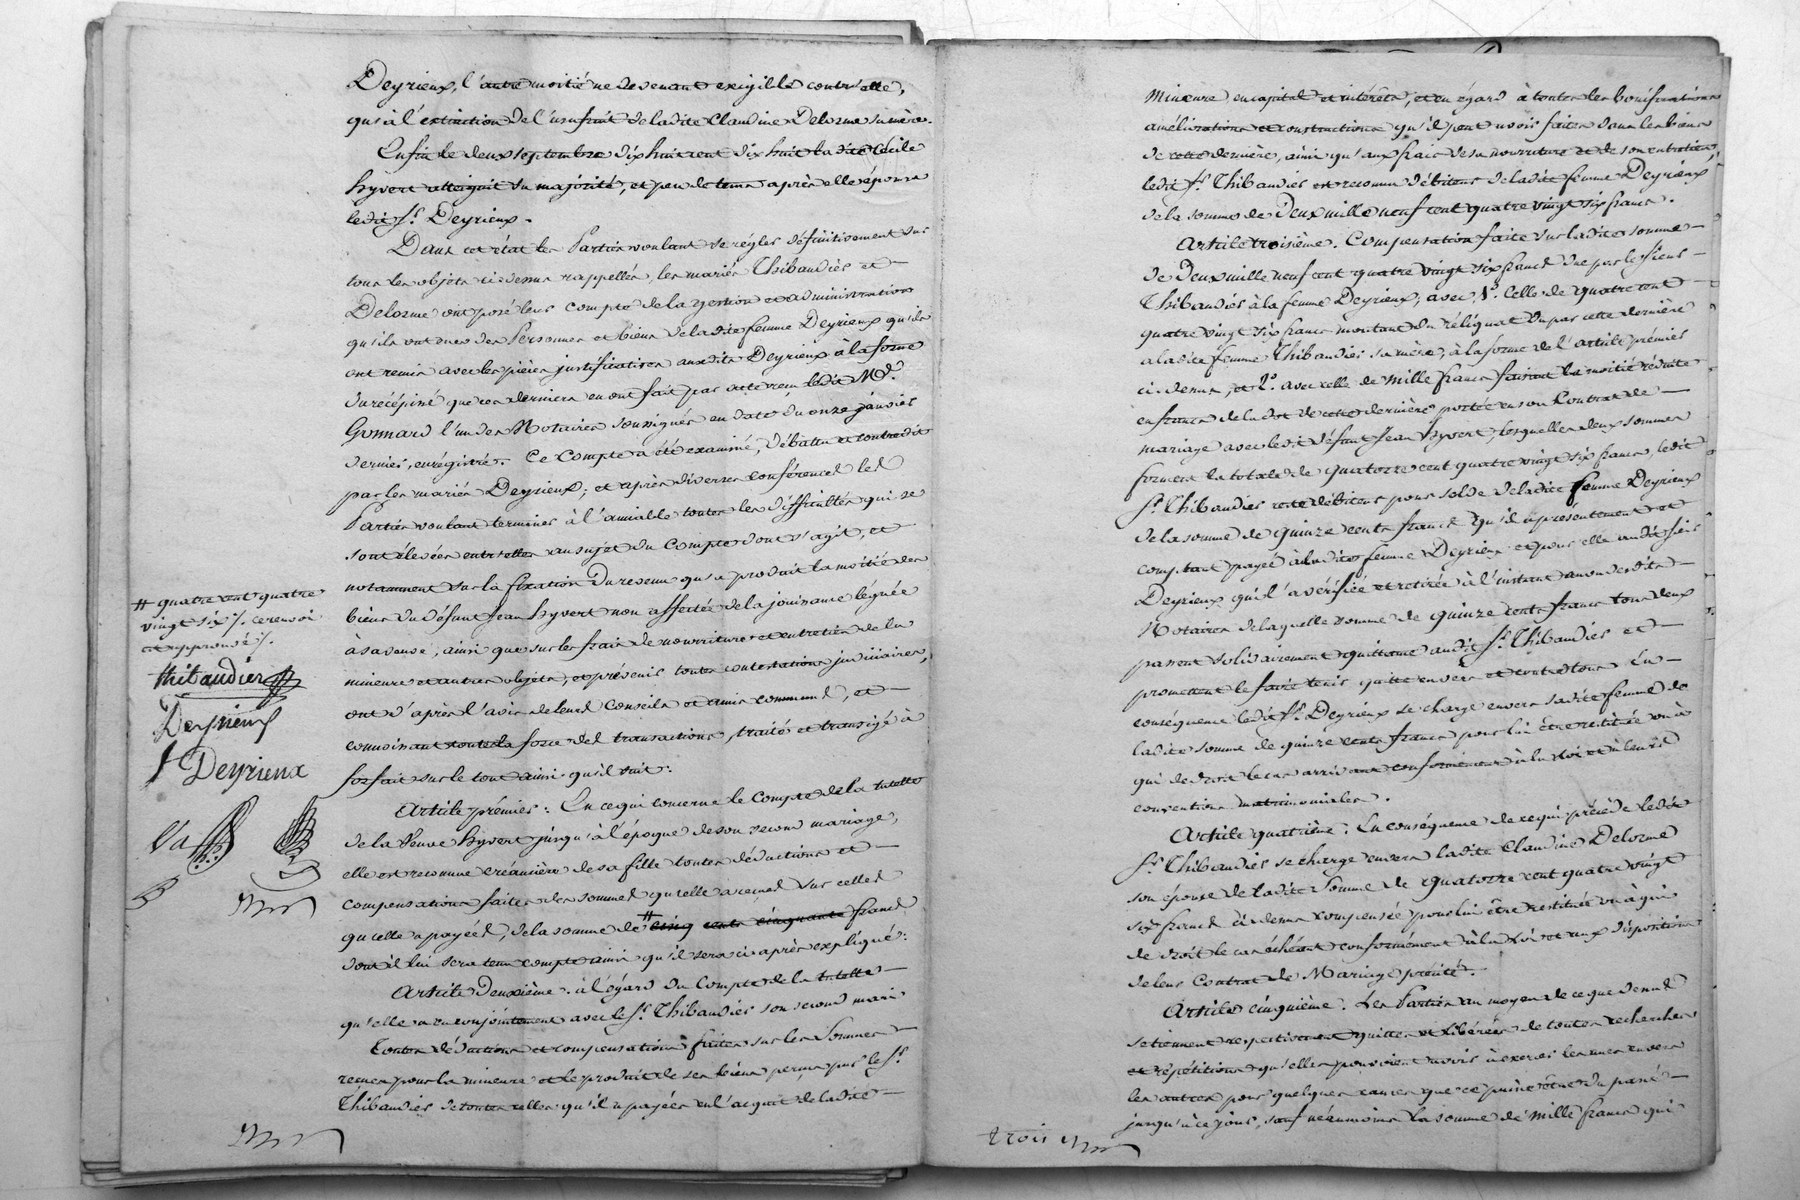 Deyrieux, l'autre moitié ne devenant exigible contr'elle,
qu'à l'extinction de l'usufruit de ladite Claudine Delorme sa mère.
Enfin le deux septembre dix huit cent dix huit la dite Cécile
hyvert atteignit sa majorité, et peu de tems après elle épousa
ledit Sr. Deyrieux.
Dans cet état les Parties voulant se régler définitivement sur
tous les objets ci-dessus rappellés, les mariés Thibaudier et
Delorme ont posé leur compte de la gestion et administration
qu'ils ont eues des Personnes et biens de ladite femme Deyrieux qu'ils
ont remis avec les pièces justificatives auxdits Deyrieux à la forme
du récépissé que ces derniers en ont fait par acte reçu ledit Me.
Gonnard l'un des Notaires soussignés en date du onze janvier
dernier, enregistré. Ce Compte a été examiné, débattu et contredit
par les mariés Deyrieux; et après diverses conférences les
Parties voulant terminer à l'amiable toutes les difficultés qui se
sont élevées entr'elles au sujet du compte dont s'agit, et
notamment sur la fixation du revenu qu'a produit la moitié des
biens du défunt Jean hyvert non affectée de la jouissance léguée
à sa veuve, ainsi que sur les frais de nourriture et entretien de la
mineure et autres objets, et prévenir toutes contestations judiciaires,
ont d'après l'avis de leurs conseils et amis communs, et
connoissant toute la force des transactions, traité et transigé à
forfait sur le tout ainsi qu'il suit:
Article prémier: En ce qui concerne le Compte de la tutelle
de la Veuve hyvert jusqu'à l'époque de son second mariage,
elle est reconnue créancière de sa fille toutes déductions et
compensations faites des sommes qu'elle a reçues sur celles
qu'elle a payées, de la somme de # cinq cents cinquante francs
dont il lui sera tenu compte ainsi qu'il sera ci après expliqué:
Article Deuxième. à l'égard du Compte de la tutelle
qu'elle a eu conjointement avec le Sr. Thibaudier son second mari
toutes déductions et compensations faites sur les Sommes
reçues pour la mineure et le produit de ses biens perçus par le Sr.
Thibaudier de toutes celles qu'il a payées en l'acquit de ladite
# quatre cent quatre
vingt six %. ce renvoi
est approuvé %.
thibaudier
Deyrieux
f Deyrieux
mineure, en capital et intérêts, et eu égard à toutes les bonifications
améliorations et constructions qu'il peut avoir faites dans les biens
de cette dernière, ainsi qu'aux frais de sa nourriture et de son entretien,
ledit Sr. Thibaudier est reconnu débiteur de ladite femme Deyrieux
de la somme de Deux mille neuf cent quatre vingt six francs.
Article troisième. Compensation faite sur ladite somme
de Deux mille neuf cent quatre vingt six francs due par le Sieur
Thibaudier à la femme Deyrieux, avec 1°. Celle de quatre cent
quatre vingt six francs montant du réliquat du par cette dernière
a ladite femme Thibaudier sa mère, à la forme de l'article prémier
ci-dessus, et 2°. avec celle de mille francs faisant la moitié réduite
en francs de la dot de cette dernière portée en son Contrat de
mariage avec ledit défunt Jean hyvert; lesquelles deux sommes
forment la totale de quatorze cent quatre vingt six francs, ledit
Sr. Thibaudier reste débiteur pour solde de ladite femme Deyrieux
de la somme de quinze cents francs qu'il a présentement et
comptant payé à ladite femme Deyrieux et pour elle audit Sieur
Deyrieux qui l'a vérifiée et retirée à l'instant au vu desdits
Notaires de laquelle somme de quinze cents francs tous deux
passent solidairement quittance audit Sr. Thibaudier et
promettent le faire tenir quitte envers et contre tous. En
conséquence ledit Sr. Deyrieux se charge envers sadite femme de
ladite somme de quinze cents francs pour lui être restituée ou à
qui de droit le cas arrivant conformément à la Loi et à leurs
conventions matrimoniales.
Article quatrième. En conséquence de ce qui précède ledit
Sr. Thibaudier se charge envers ladite Claudine Delorme
son épouse de ladite Somme de quatorze cent quatre vingt
six francs ci-dessus compensée pour lui être restituée ou à qui
de droit le cas échéant conformément à la Loi et aux dispositions
de leur Contrat de Mariage précité.
Article cinquième. Les Parties au moyen de ce que dessus
se tiennent respectivement quittes et libérées de toutes recherches
et répétitions qu'elles pouvoient avoir à exercer les unes envers
les autres pour quelques causes que ce puisse être du passé
jusqu'à ce jour, sauf néanmoins la somme de mille francs qui
trois